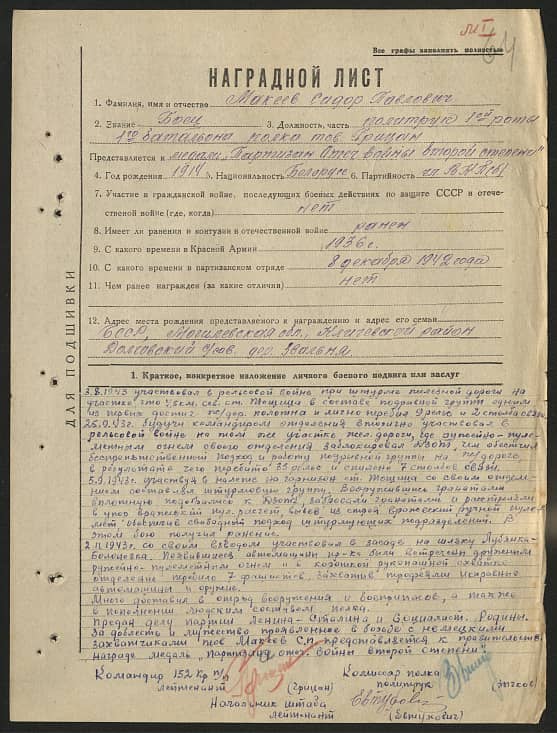 Все графы заполнять полностью
НАГРАДНОЙ ЛИСТ
1. Фамилия, имя и отчество Макеев Сидор Павлович
2. Звание Боец 3. Должность, часть политрук 1ой роты
1го батальона полка тов. Грицан
Представляется к медали "Партизан Отеч. войны второй степени"
4. Год рождения 5. Национальность Белорус 6. Партийность чл. ВКП(б)
7. Участие в гражданской войне, последующих боевых действиях по защите СССР и отече-
ственной войне (где, когда) нет
8. Имеет ли ранения и контузии в отечественной войне ранен
9. С какого времени в Красной Армии 1936 г.
10. С какого времени в партизанском отряде 8 декабря 1942 года
11. Чем ранее награжден (за какие отличия) нет
12. Адрес места рождения представляемого к награждению и адрес его семьи
БССР, Могилевская обл., Кличевский район
дер.
ДЛЯ ПОДШИВКИ
1. Краткое, конкретное изложение личного боевого подвига или заслуг
3.8.1943 участвовал в рельсовой войне при штурме железной дороги на
участке ст. Тощица. В составе подрывной группы одним
из первых достиг жел/дор. полотна и лично перебил рельс и 2 столба связи
25.9.43г. Будучи командиром отделения вторично участвовал в
рельсовой войне на том же участке жел. дороги, где ружейно-пуле-
метным огнем своего отделения заблокировал ДЗОТ, чем обеспечил
беспрепятственный подход и работу подрывной группы на жел/дороге,
в результате чего перебито 35 рельс и спилено 7 столбов связи.
5.9.1943г. участвуя в налете на гарнизон ст. Тощица со своим отделе-
нием составлял штурмовую группу. Вооружившись гранатами
вплотную подобрался к ДЗОТу, забросал гранатами и расстрелял
в упор вражеский пул. расчет, выбив из строя вражеский ручной пуле-
мет обеспечив свободный подход штурмующих подразделений. В
этом бою получил ранение.
2.11.1943г. со своим взводом участвовал в засаде на шляху
Появившиеся автомашины пр-ка были встречены дружным
ружейно-пулеметным огнем и в короткой рукопашной схватке
отделение перебило 7 фашистов, захватив трофеями исправные
автомашины и оружие.
Много доставил в отряд вооружения и боеприпасов, а также
в пополнении людским составом полка.
Предан делу партии Ленина-Сталина и Социалист. Родины.
За доблесть и мужество проявленное в борьбе с немецкими
захватчиками тов. Макеев С.П. представляется к правительств.
награде медаль "партизана отеч. войны второй степени"
Командир 152 п/п
лейтенант (Грицан)
Комиссар полка
политрук (Зычков)
Начальник штаба
лейтенант (Евтухович)